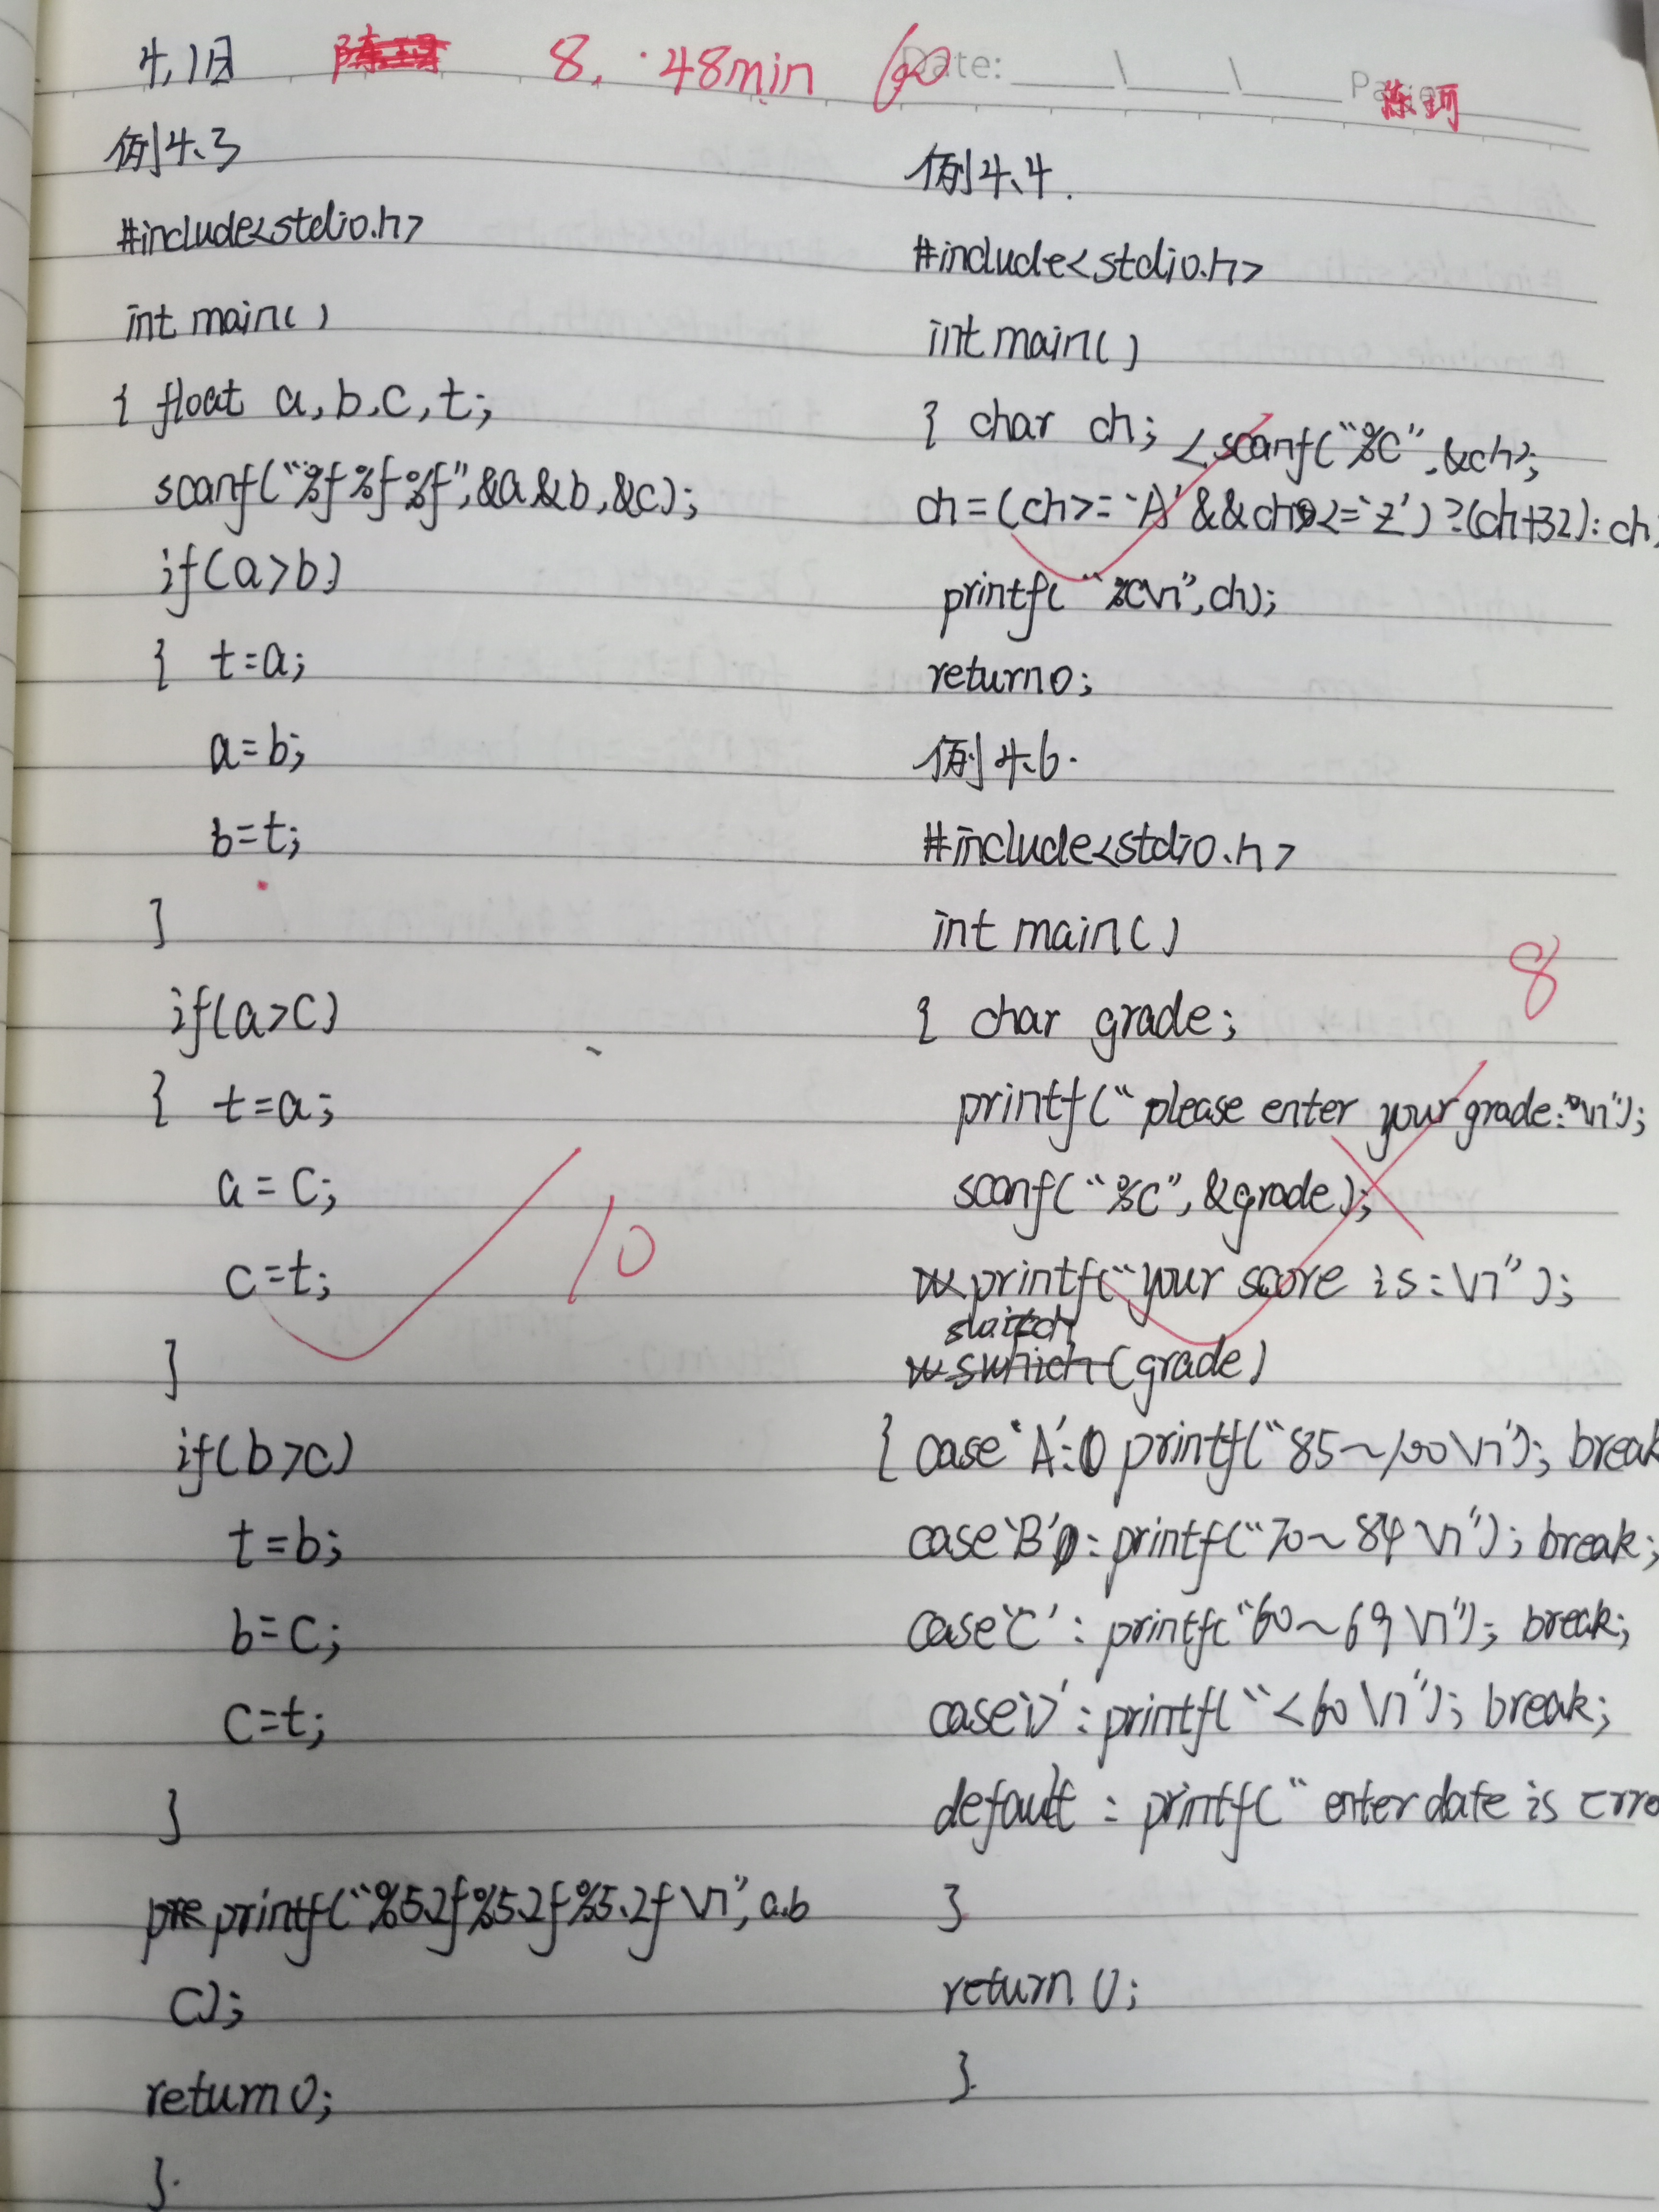 4,1日 8. 48min 60 Date:
陈珂
例4.3
#include<stdio.h>
int main()
{ float a,b,c,t;
scanf("%f%f%f",&a&b,&c);
if(a>b)
{ t=a;
a=b;
b=t;
}
if(a>c)
{ t=a;
a=c;
c=t;
10
}
if(b>c)
t=b;
b=c;
c=t;
}
printf("%5.2f%5.2f%5.2f\n",a,b
c);
return 0;
}.
例4.4.
#include<stdio.h>
int main()
{ char ch; scanf("%c",&ch);
ch=(ch>='A'&&ch<='z')?(ch+32):ch
printf("%c\n",ch);
return 0;
例4.6.
#include<stdio.h>
int main()
8
{ char grade;
printf("please enter your grade:\n");
scanf("%c",&grade);
printf("your score is:\n");
switch
(grade)
{ case 'A': printf("85~100\n"); break
case 'B': printf("70~84\n"); break;
case 'C': printf("60~69\n"); break;
case 'D': printf("<60\n"); break;
default: printf("enter date is erro
}
return 0;
}.